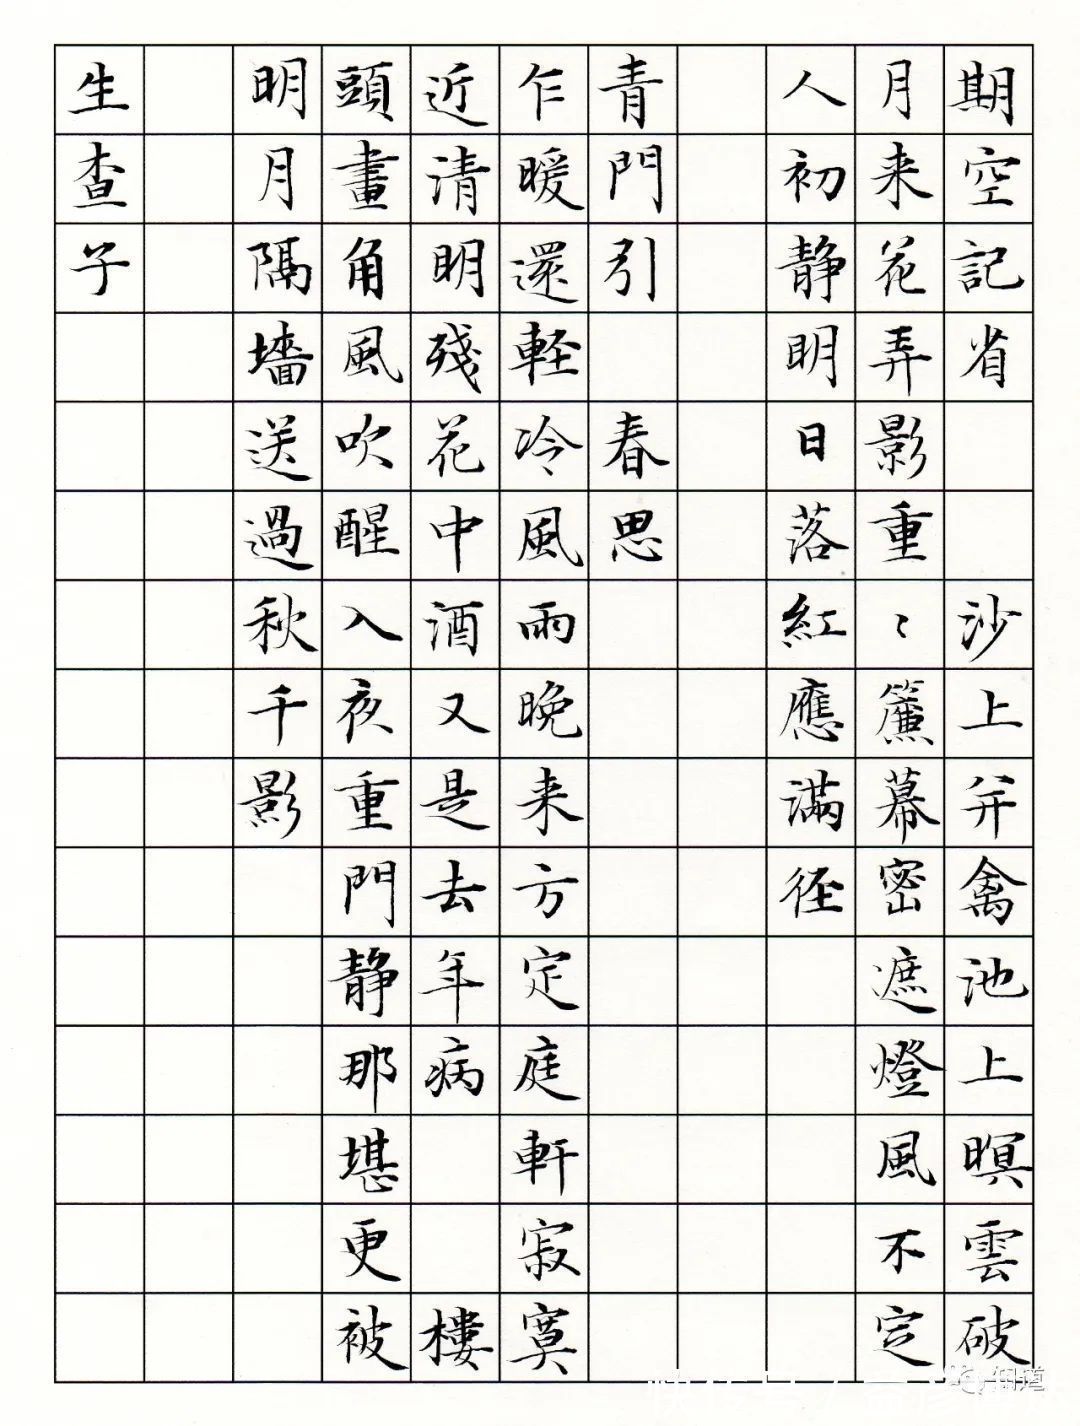 期空記省 沙上并禽池上暝雲破
月来花弄影重〻簾幕密遮燈風不定
人初静明日落紅應滿径
青門引 春思
乍暖還軽冷風雨晚来方定庭軒寂寞
近清明殘花中酒又是去年病 樓
頭畫角風吹醒入夜重門静那堪更被
明月隔墻送過秋千影
生查子